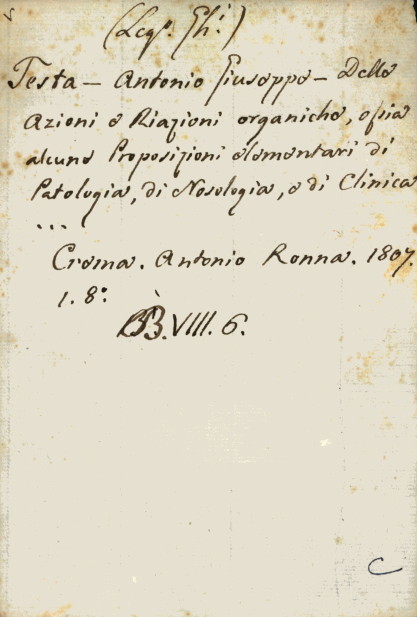 (Leg.º Gh.i)
Testa - Antonio Giuseppe - Delle
Azioni e Riazioni organiche, ossia
alcune Proposizioni elementari di
Patologia, di Nosologia, e di Clinica
...
Crema. Antonio Ronna. 1807.
1. 8.º
BB. VIII. 6.
C